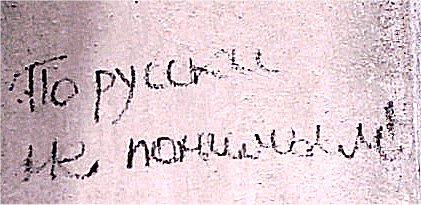 По русски
не понимаем